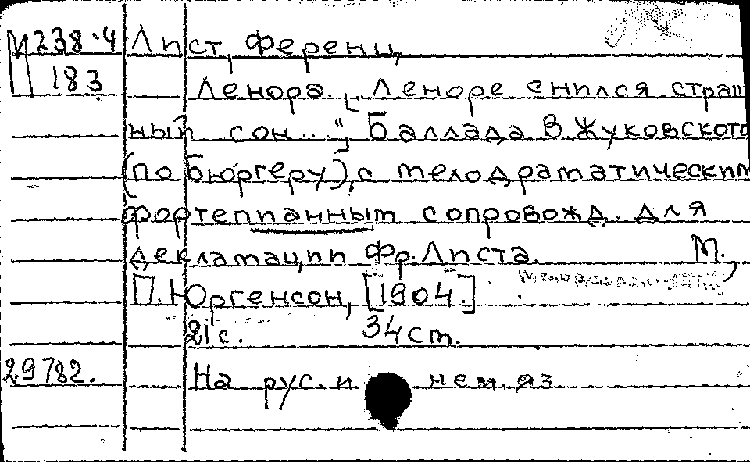 М 238.4 Лист, Ференц,
П 183 Ленора. „Леноре снился страш-
ный сон...", Баллада В. Жуковского
(по Бюргеру), с мелодраматическим
фортепианным сопровожд. для
декламации Фр. Листа. М.,
П. Юргенсон, [1904.]
21 с. 34 см.
29782. На рус. и нем. яз.